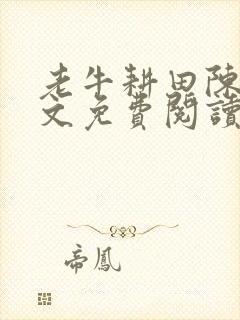 老牛耕田陳
文免費閱讀
帝鳳